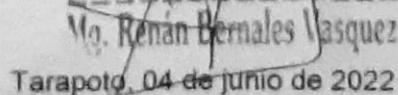 Mg. Renán Bernales Vasquez
Tarapoto, 04 de junio de 2022